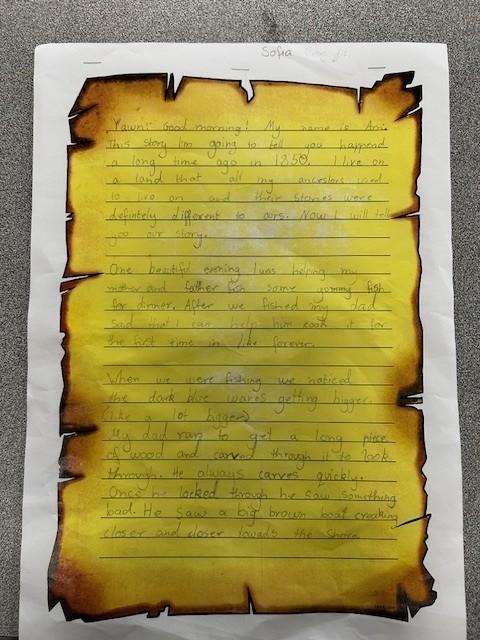 Sofia
Yawn! Good morning! My name is Ari.
This story I'm going to tell you happend
a long time ago in 1850. I live on
a land that all my ancestors used
to live on and their stories were
definitely different to ours. Now I will tell
you our story.
One beautiful evening I was helping my
mother and father fish some yummy fish
for dinner. After we fished my dad
said that I can help him cook it for
the first time in like forever.
When we were fishing we noticed
the dark blue waves getting bigger.
(Like a lot bigger)
My dad ran to get a long piece
of wood and carved through it to look
through. He always carves quickly.
Once he looked through he saw something
bad. He saw a big brown boat creaking
closer and closer towads the shore.